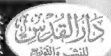 دار القدس
للنشر والتوزيع